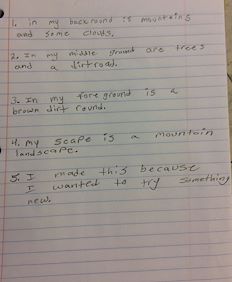 1. in my backround is mountains
and some clouds.
2. In my middle ground are trees
and a dirtroad.
3. In my fore ground is a
brown dirt round.
4. my scape is a mountain
landscape.
5. I made this because
I wanted to try something
new.